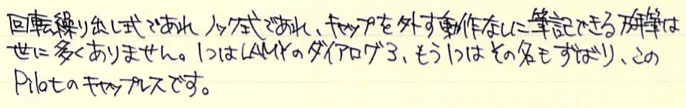 回転繰り出し式であれノック式であれ、キャップを外す動作なしに筆記できる万年筆は
世に多くありません。1つはLAMYのダイアログ3、もう1つはその名もずばり、この
Pilotのキャップレスです。